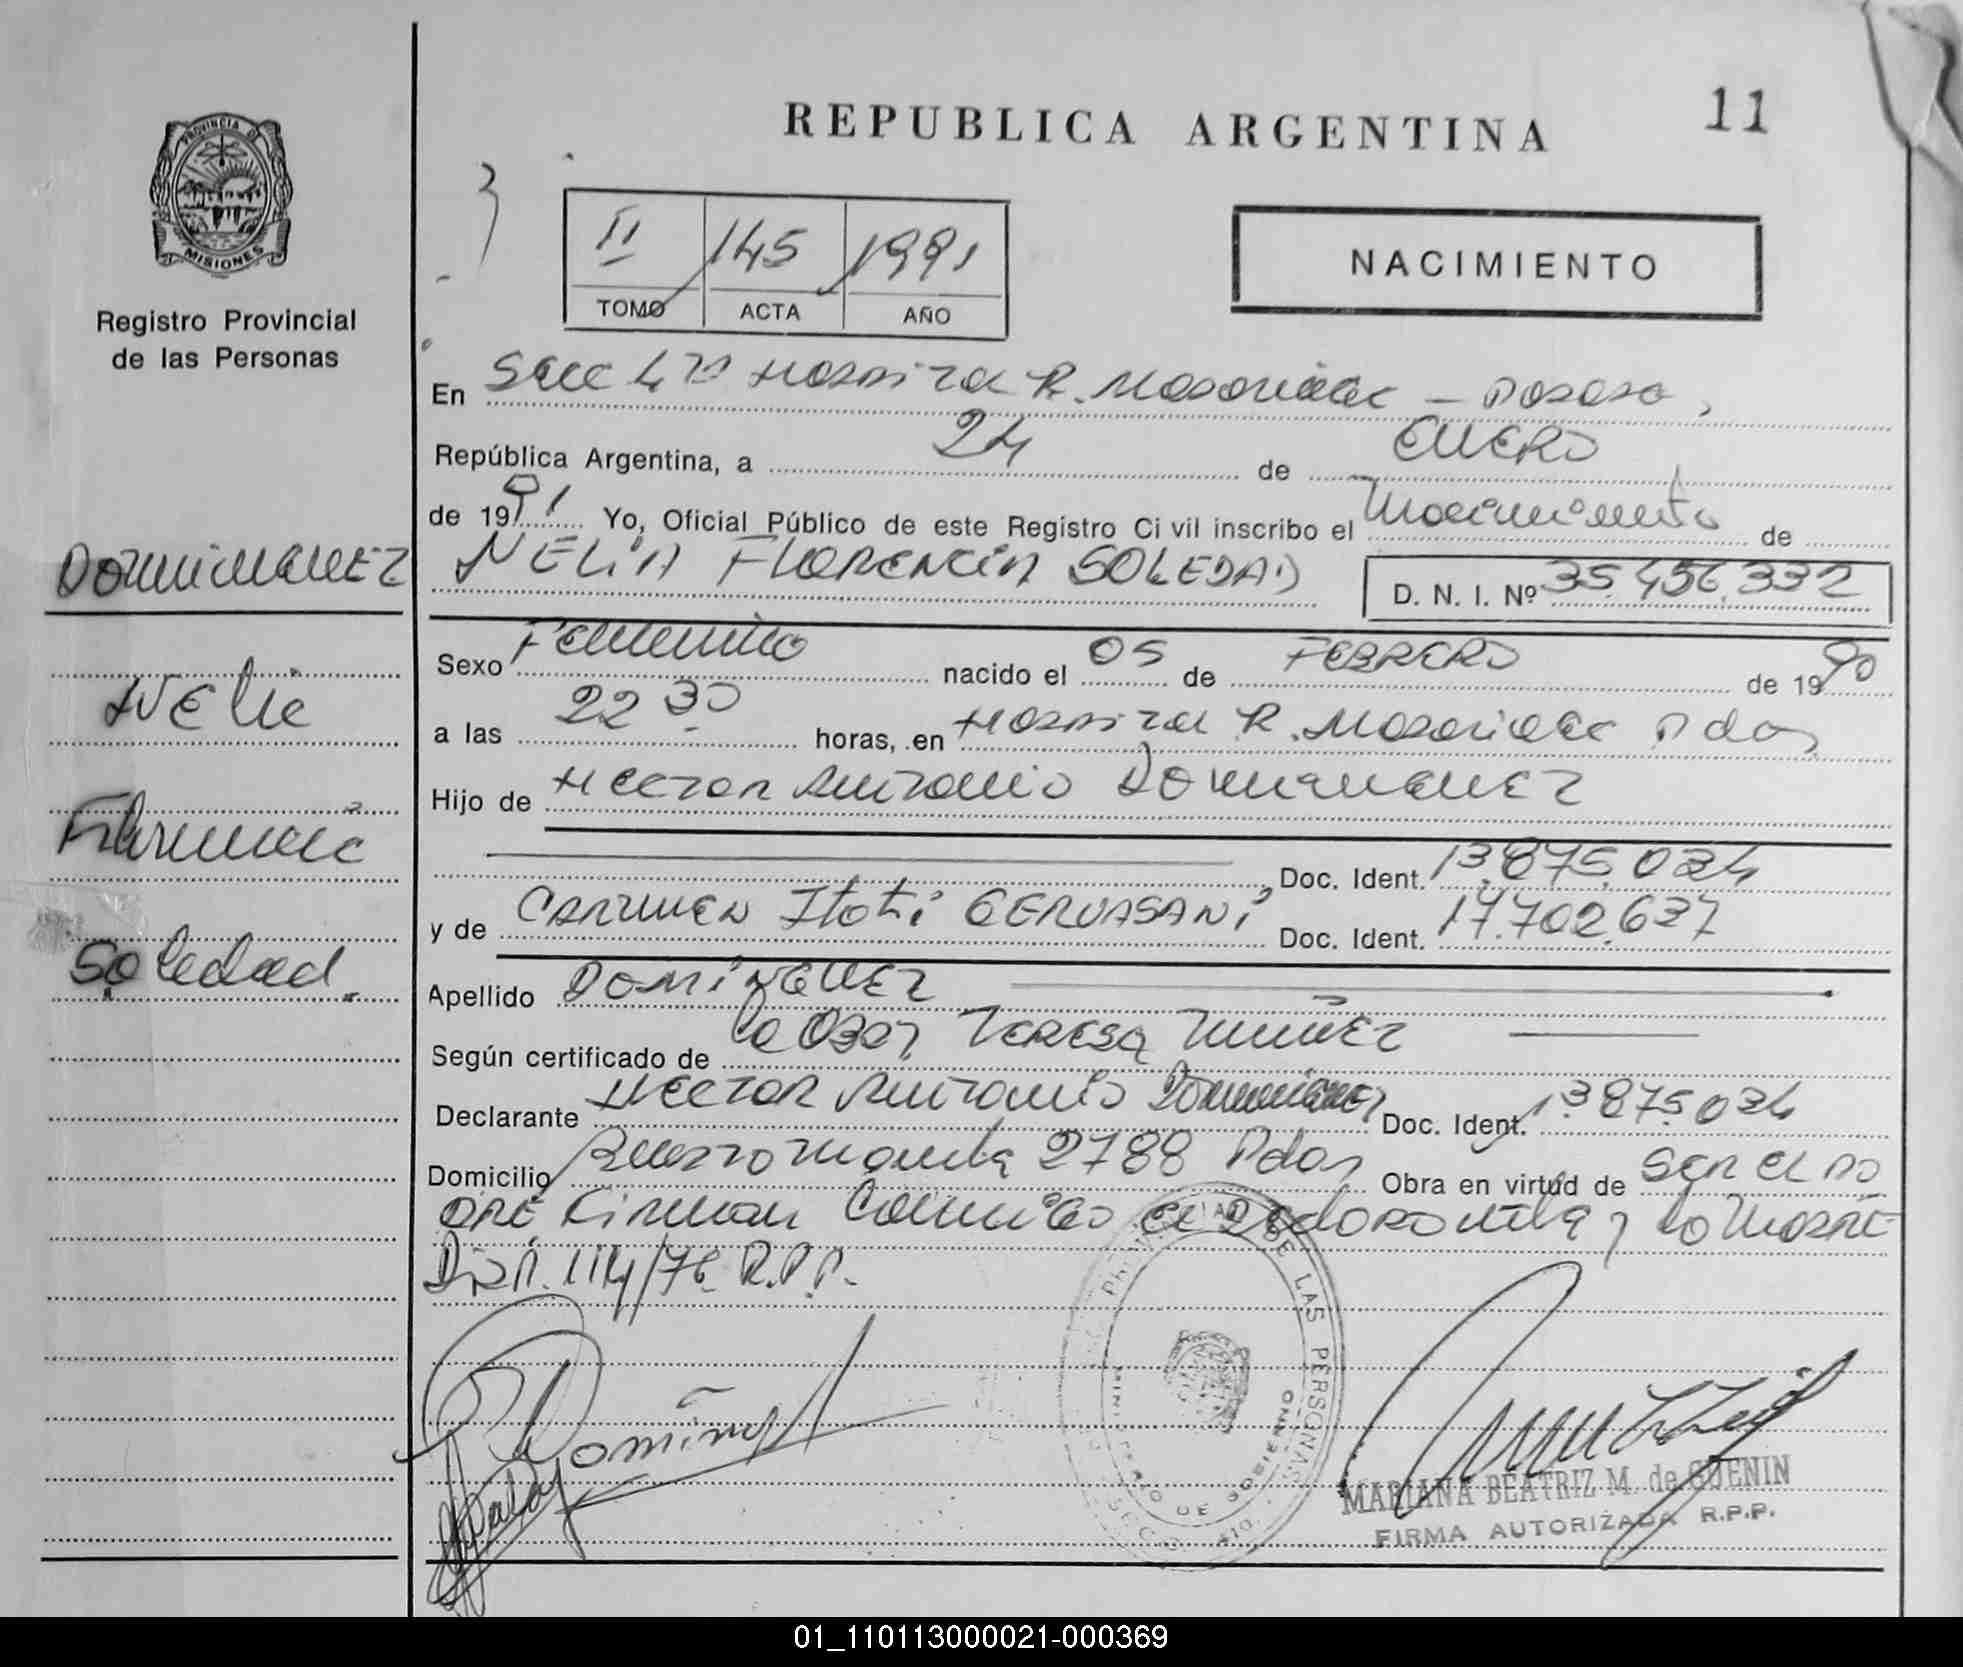 REPUBLICA ARGENTINA
11
PROVINCIA DE
MISIONES
Registro Provincial
de las Personas
II 145 1991
TOMO ACTA AÑO
NACIMIENTO
En Secc 4ta Hospital R. Madariaga - Posadas,
República Argentina, a 24 de ENERO
de 1991 Yo, Oficial Público de este Registro Civil inscribo el Nacimiento de
NELIA FLORENCIA SOLEDAD D. N. I. Nº 35.456.332
Sexo Femenino nacido el 05 de FEBRERO de 1990
a las 22 30 horas, en Hospital R. Madariaga Pdas,
Hijo de Hector Antonio Dominguez
Doc. Ident. 13.875.024
y de CARMEN Itatí GERVASANI Doc. Ident. 17.702.637
Apellido DOMINGUEZ
Según certificado de la Obst, TERESA NUÑEZ
Declarante HECTOR Antonio Dominguez Doc. Ident. 13875.024
Domicilio 2788 Pdas Obra en virtud de SER EL PA
DRE Firman la Madre
Disp. 114/76 R.P.P.
DOMINGUEZ
Nelia
Florencia
Soledad.
DE LAS PERSONAS
MINISTERIO DE GOBIERNO
MARIANA BEATRIZ M. de GUENIN
FIRMA AUTORIZADA R.P.P.
01_110113000021-000369